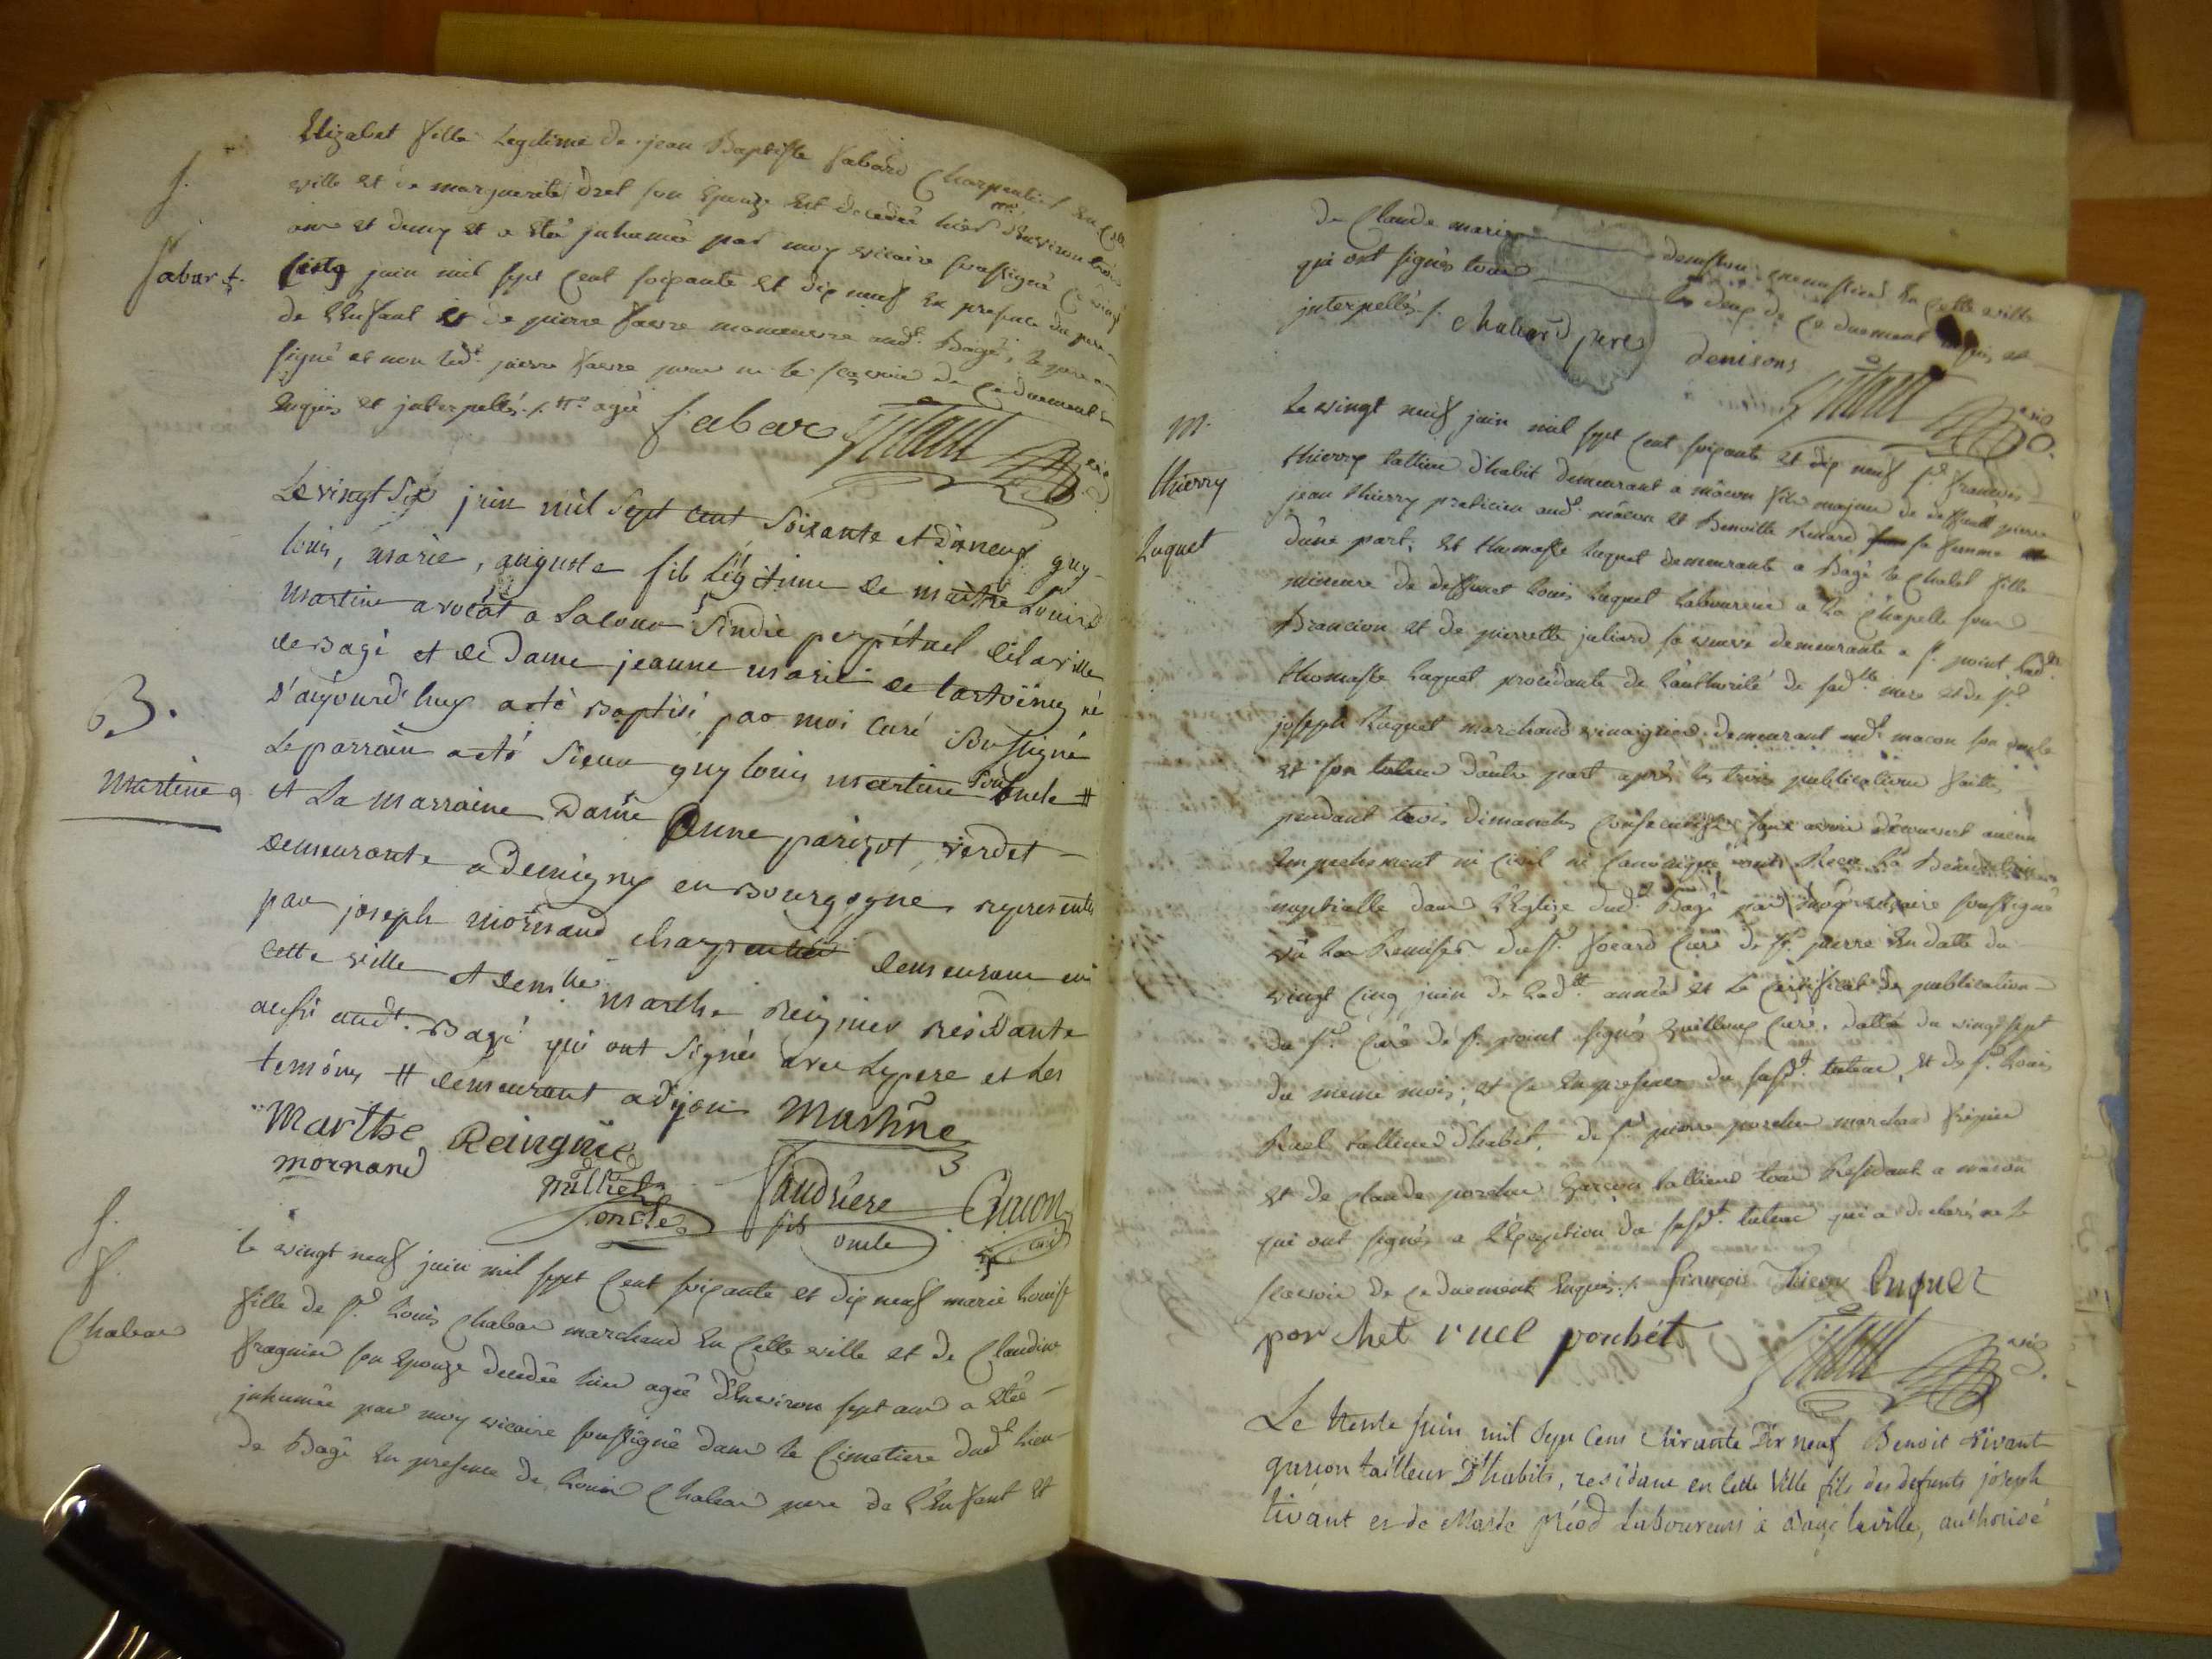 Elizabet fille Legitime de jean Baptiste fabard Charpentier en cette
ville et de marguerite dret son Epouze est decedée hier d'environ trois
ans et demy et a été inhumée par moy vicaire soussigné ce vingt
cinq juin mil sept cent soixante et dix neuf en presence du pere
de L'Enfant et de pierre faivre manoeuvre aud.t Bagé, le pere a
signé et non led.t pierre faivre pour ne le sçavoir de ce duement
Enquis et interpellés ./. agée
fabar
f.
fabar
vic.
Le vingt Six juin mil Sept cent Soixante et dixneuf guy
louis, marie, auguste fils Légitime de maitre Louis
martine avocat a la cour Sindic perpétuel de la ville
de Bagé et de Dame jeanne marie de né
d'aujourd'huy a eté Baptisé par moi curé Soussigné
Le parrain a eté Sieur guy louis martine Son Oncle #
et La marraine Dame Anne parizot verdet
demeurante a Demigny en Bourgogne, representés
par joseph mornand charpentier demeurant en
cette ville et dem.lle marthe Reignier residante
aussi aud.t Bagé qui ont Signés avec Le pere et les
temoins # demeurant a dijon
B.
martine
Marthe Reingnie Martine
mornand
oncle
fils oncle
curé
Le vingt neuf juin mil sept Cent soixante et dix neuf marie Louise
fille de s.r Louis Chabar marchand en Cette ville et de Claudine
son Epouze decedée hier agée d'Environ sept ans a été
inhumée par moy vicaire soussigné dans le Cimetiere dud.t lieu
de Bagé en presence de Louis Chabar pere de L'Enfant et
f.
Chabar
de Claude marie denison en cette ville
qui ont signés tous les deux de ce duement Enquis et
interpellés ./. Chabard pere denisons
vic.
Le vingt neuf juin mil sept Cent soixante et dix neuf s.r francois
thierry tallieur d'habit demeurant a mâcon fils majeur de deffunt
jean thierry praticien aud.t mâcon et Benoitte Renard sa femme
d'une part, et thomasse Luquet demeurante a Bagé le Chatel fille
mineure de deffunt Louis Luquet Laboureur a la Chapelle sous
Brancion et de pierrette juliard sa veuve demeurante a s.t point lad.te
thomasse Luquet procedante de L'authorité de sad.te mere et de s.r
joseph Luquet marchand vinaigrier demeurant aud.t macon son oncle
et son tuteur d'autre part après les trois publications faittes
pendant trois dimanches Consecutifs sans avoir découvert aucun
Empechement ni Civil ni Canonique ont Reçu la Benediction
nuptialle dans L'Eglize dud.t Bagé par moy vicaire soussigné
vû la Remise du s.r focard Curé de st. pierre en datte du
vingt Cinq juin de lad.te année et le Certificat de publication
du s.r Curé de st. point signé Curé, datté du vingt sept
du meme mois, et ce en presence du susd.t tuteur, et de s.r Louis
Ruel tallieur d'habit, de s.r pierre porchet marchand fripier
et de claude garçon tallieur tous Residants a macon
qui ont signés a L'Exception du susd.t tuteur qui a declaré ne le
sçavoir de ce duement Enquis ./. francois Thiery Luquet
por chet ruel
m.
thierry
Luquet
vic.
Le trente Juin mil Sept Cens Soixante Dix neuf Benoit Tivant
garçon tailleur D'habits, residant en cette Ville fils des defunts joseph
tivant et de Marie Laboureurs à Bagé la ville, authorisé